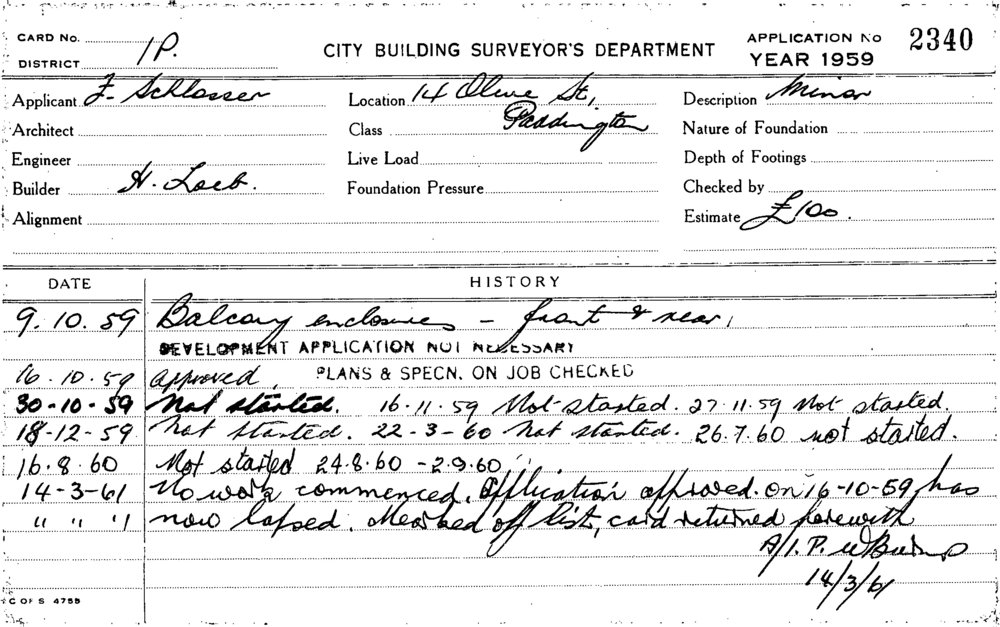 CARD No.
DISTRICT 1P.
CITY BUILDING SURVEYOR'S DEPARTMENT
APPLICATION No 2340
YEAR 1959
Applicant F. Schlosser Location 14 Olive St, Description Minor
Architect Class Paddington Nature of Foundation
Engineer Live Load Depth of Footings
Builder H. Loeb. Foundation Pressure Checked by
Alignment Estimate £100.
DATE HISTORY
9.10.59 Balcony enclosures - front & rear,
DEVELOPMENT APPLICATION NOT NECESSARY
16.10.59 Approved, PLANS & SPECN. ON JOB CHECKED
30-10-59 Not started. 16-11-59 Not started. 27.11.59 Not started.
18-12-59 Not started. 22-3-60 Not started. 26.7.60 not started.
16.8.60 Not started 24.8.60 - 2.9.60 "
14-3-61 No work commenced. Application approved on 16-10-59, has
" " " now lapsed. Marked off list, card returned herewith
A/I.P.
14/3/61
C OF S 4755